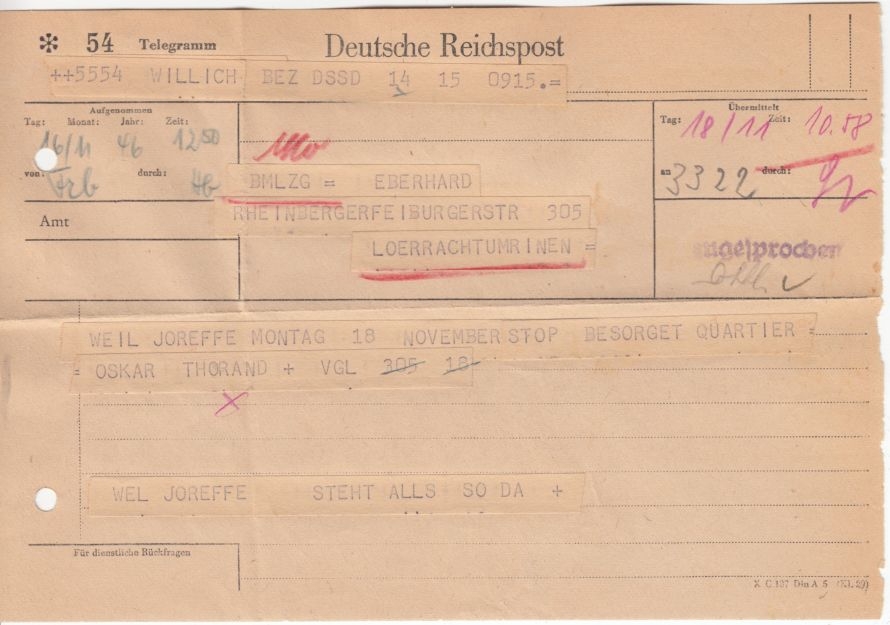 * 54 Telegramm Deutsche Reichspost
++5554 WILLICH BEZ DSSD 14 15 0915.=
Aufgenommen
Tag: Monat: Jahr: Zeit:
16/11 46 12 50
von: durch:
Frb Hb
Übermittelt
Tag: Zeit:
18/11 10.58
an durch:
3322
BMLZG = EBERHARD
RHEINBERGERFEIBURGERSTR 305
LOERRACHTUMRINEN =
Amt
WEIL JOREFFE MONTAG 18 NOVEMBER STOP BESORGET QUARTIER =
= OSKAR THORAND + VGL 305 18
WEL JOREFFE STEHT ALLS SO DA +
Für dienstliche Rückfragen
X C 187 Din A 5 (Kl. 29)